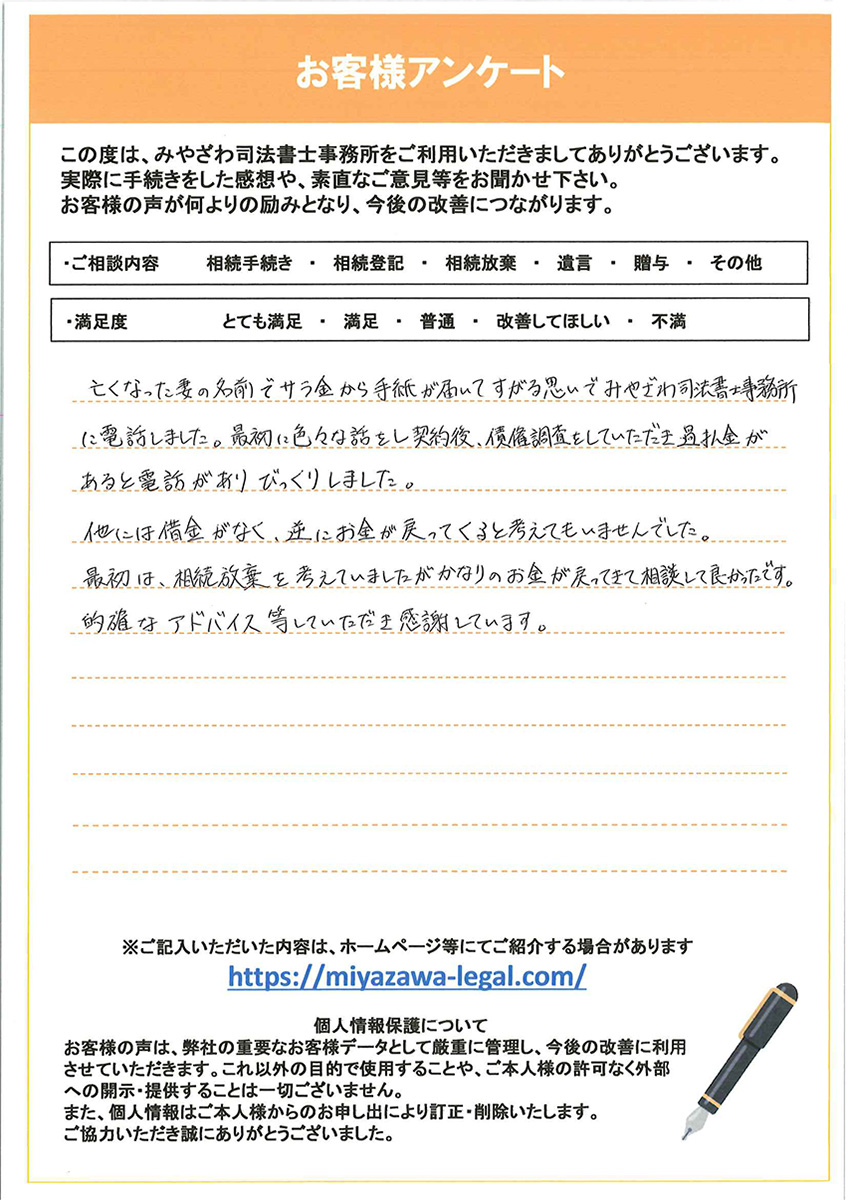 お客様アンケート
この度は、みやざわ司法書士事務所をご利用いただきましてありがとうございます。
実際に手続きをした感想や、素直なご意見等をお聞かせ下さい。
お客様の声が何よりの励みとなり、今後の改善につながります。
・ご相談内容 相続手続き ・ 相続登記 ・ 相続放棄 ・ 遺言 ・ 贈与 ・ その他
・満足度 とても満足 ・ 満足 ・ 普通 ・ 改善してほしい ・ 不満
亡くなった妻の名前でサラ金から手紙が届いてすがる思いでみやざわ司法書士事務所
に電話しました。最初に色々な話をし契約後、債権調査をしていただき過払金が
あると電話がありびっくりしました。
他には借金がなく、逆にお金が戻ってくると考えてもいませんでした。
最初は、相続放棄を考えていましたがかなりのお金が戻ってきて相談して良かったです。
的確なアドバイス等していただき感謝しています。
※ご記入いただいた内容は、ホームページ等にてご紹介する場合があります
https://miyazawa-legal.com/
個人情報保護について
お客様の声は、弊社の重要なお客様データとして厳重に管理し、今後の改善に利用
させていただきます。これ以外の目的で使用することや、ご本人様の許可なく外部
への開示・提供することは一切ございません。
また、個人情報はご本人様からのお申し出により訂正・削除いたします。
ご協力いただき誠にありがとうございました。